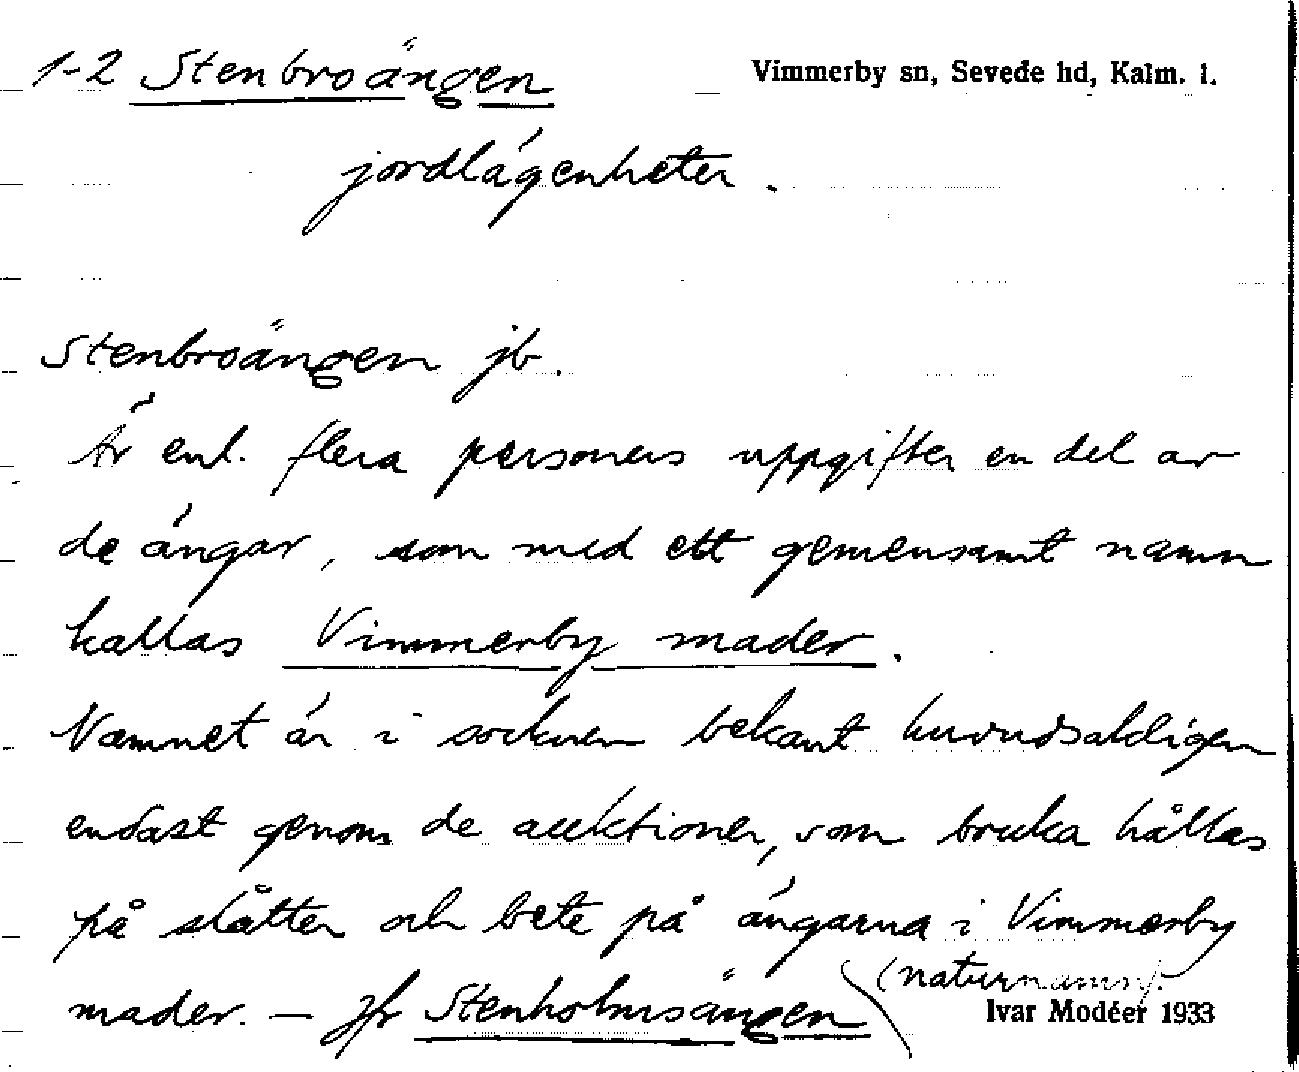 1-2 Stenbroängen
Vimmerby sn, Sevede hd, Kalm. l.
jordlägenheter.
Stenbroängen jb.
Är enl. flera personers uppgifter en del av
de ängar, som med ett gemensamt namn
kallas Vimmerby mader.
Namnet är i socknen bekant huvudsakligen
endast genom de auktioner, som bruka hållas
på slåtter och bete på ängarna i Vimmerby
mader. — Jfr Stenholmsängen (naturnamn).
Ivar Modéer 1933